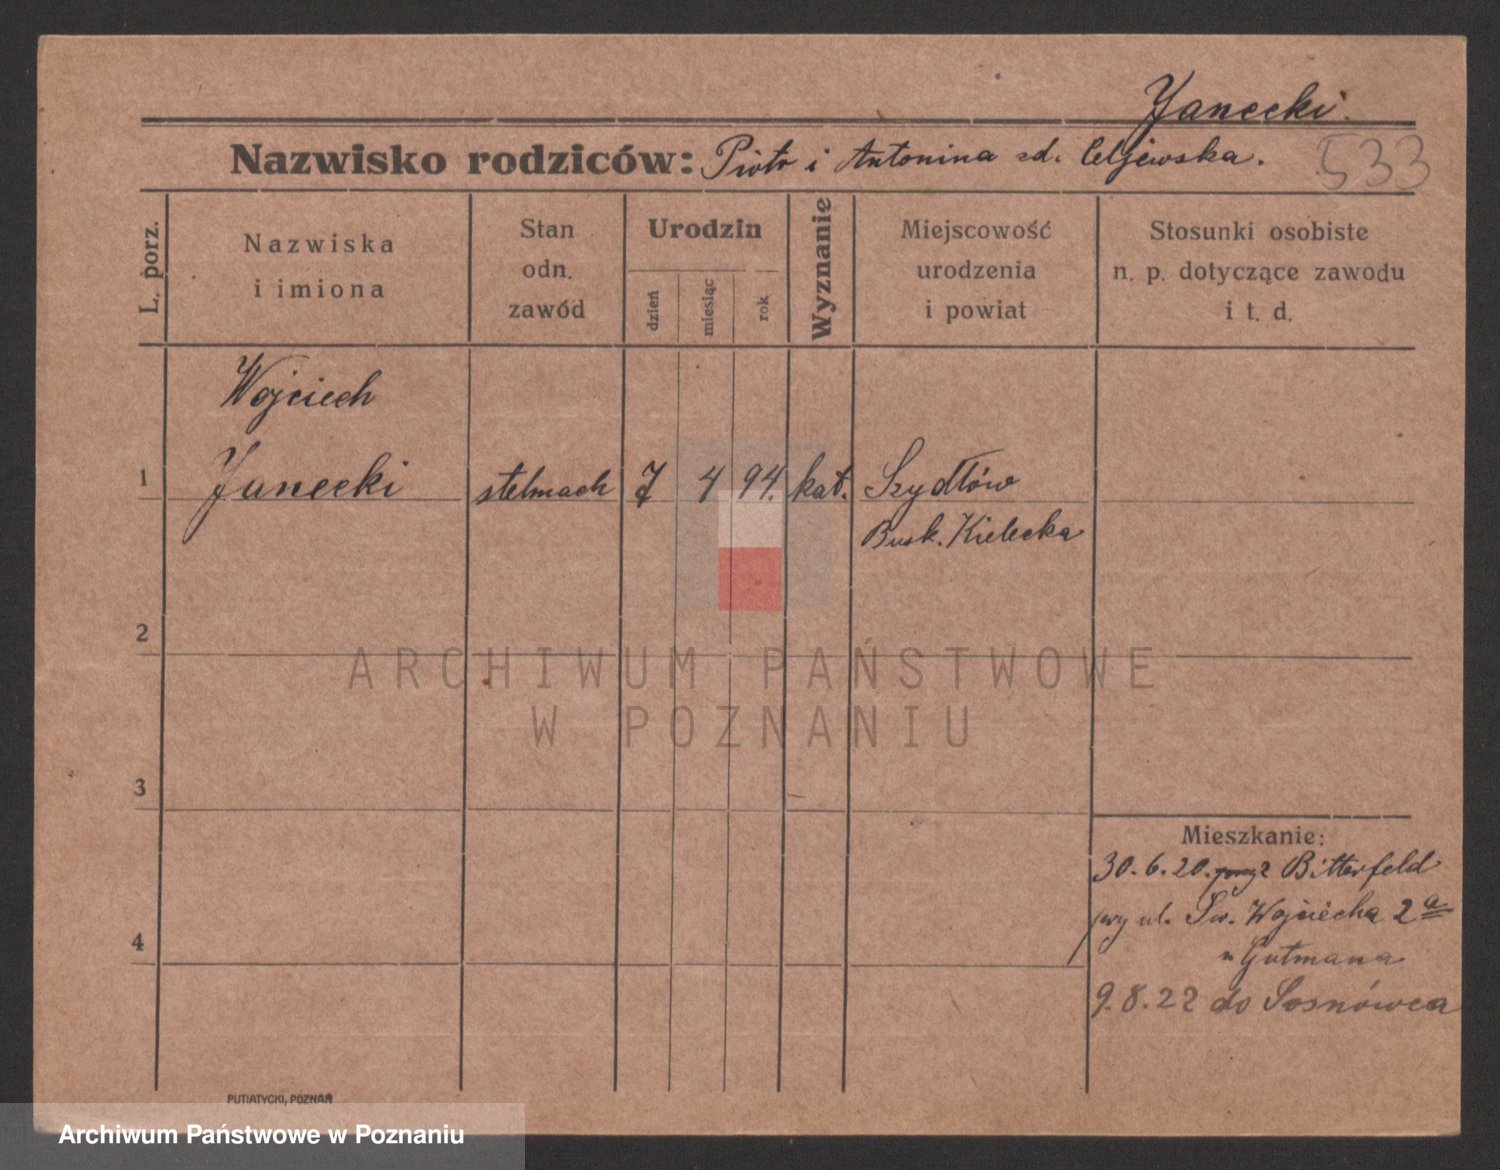 Janecki.
Nazwisko rodziców: Piotr i Antonina zd. Celjewska.
533
L. porz.
Nazwiska
i imiona
Stan
odn.
zawód
Urodzin
dzień
miesiąc
rok
Wyznanie
Miejscowość
urodzenia
i powiat
Stosunki osobiste
n. p. dotyczące zawodu
i t. d.
Wojciech
1 Janecki stelmach 7 4 94. kat. Szydłów
Busk. Kielecka
2
ARCHIWUM PAŃSTWOWE
W POZNANIU
3
Mieszkanie:
30.6.20. z Bitterfeld
przy ul. Św. Wojciecha 2a
4
u Gutmana
9.8.22 do Sosnówca
PUTIATYCKI, POZNAŃ
Archiwum Państwowe w Poznaniu